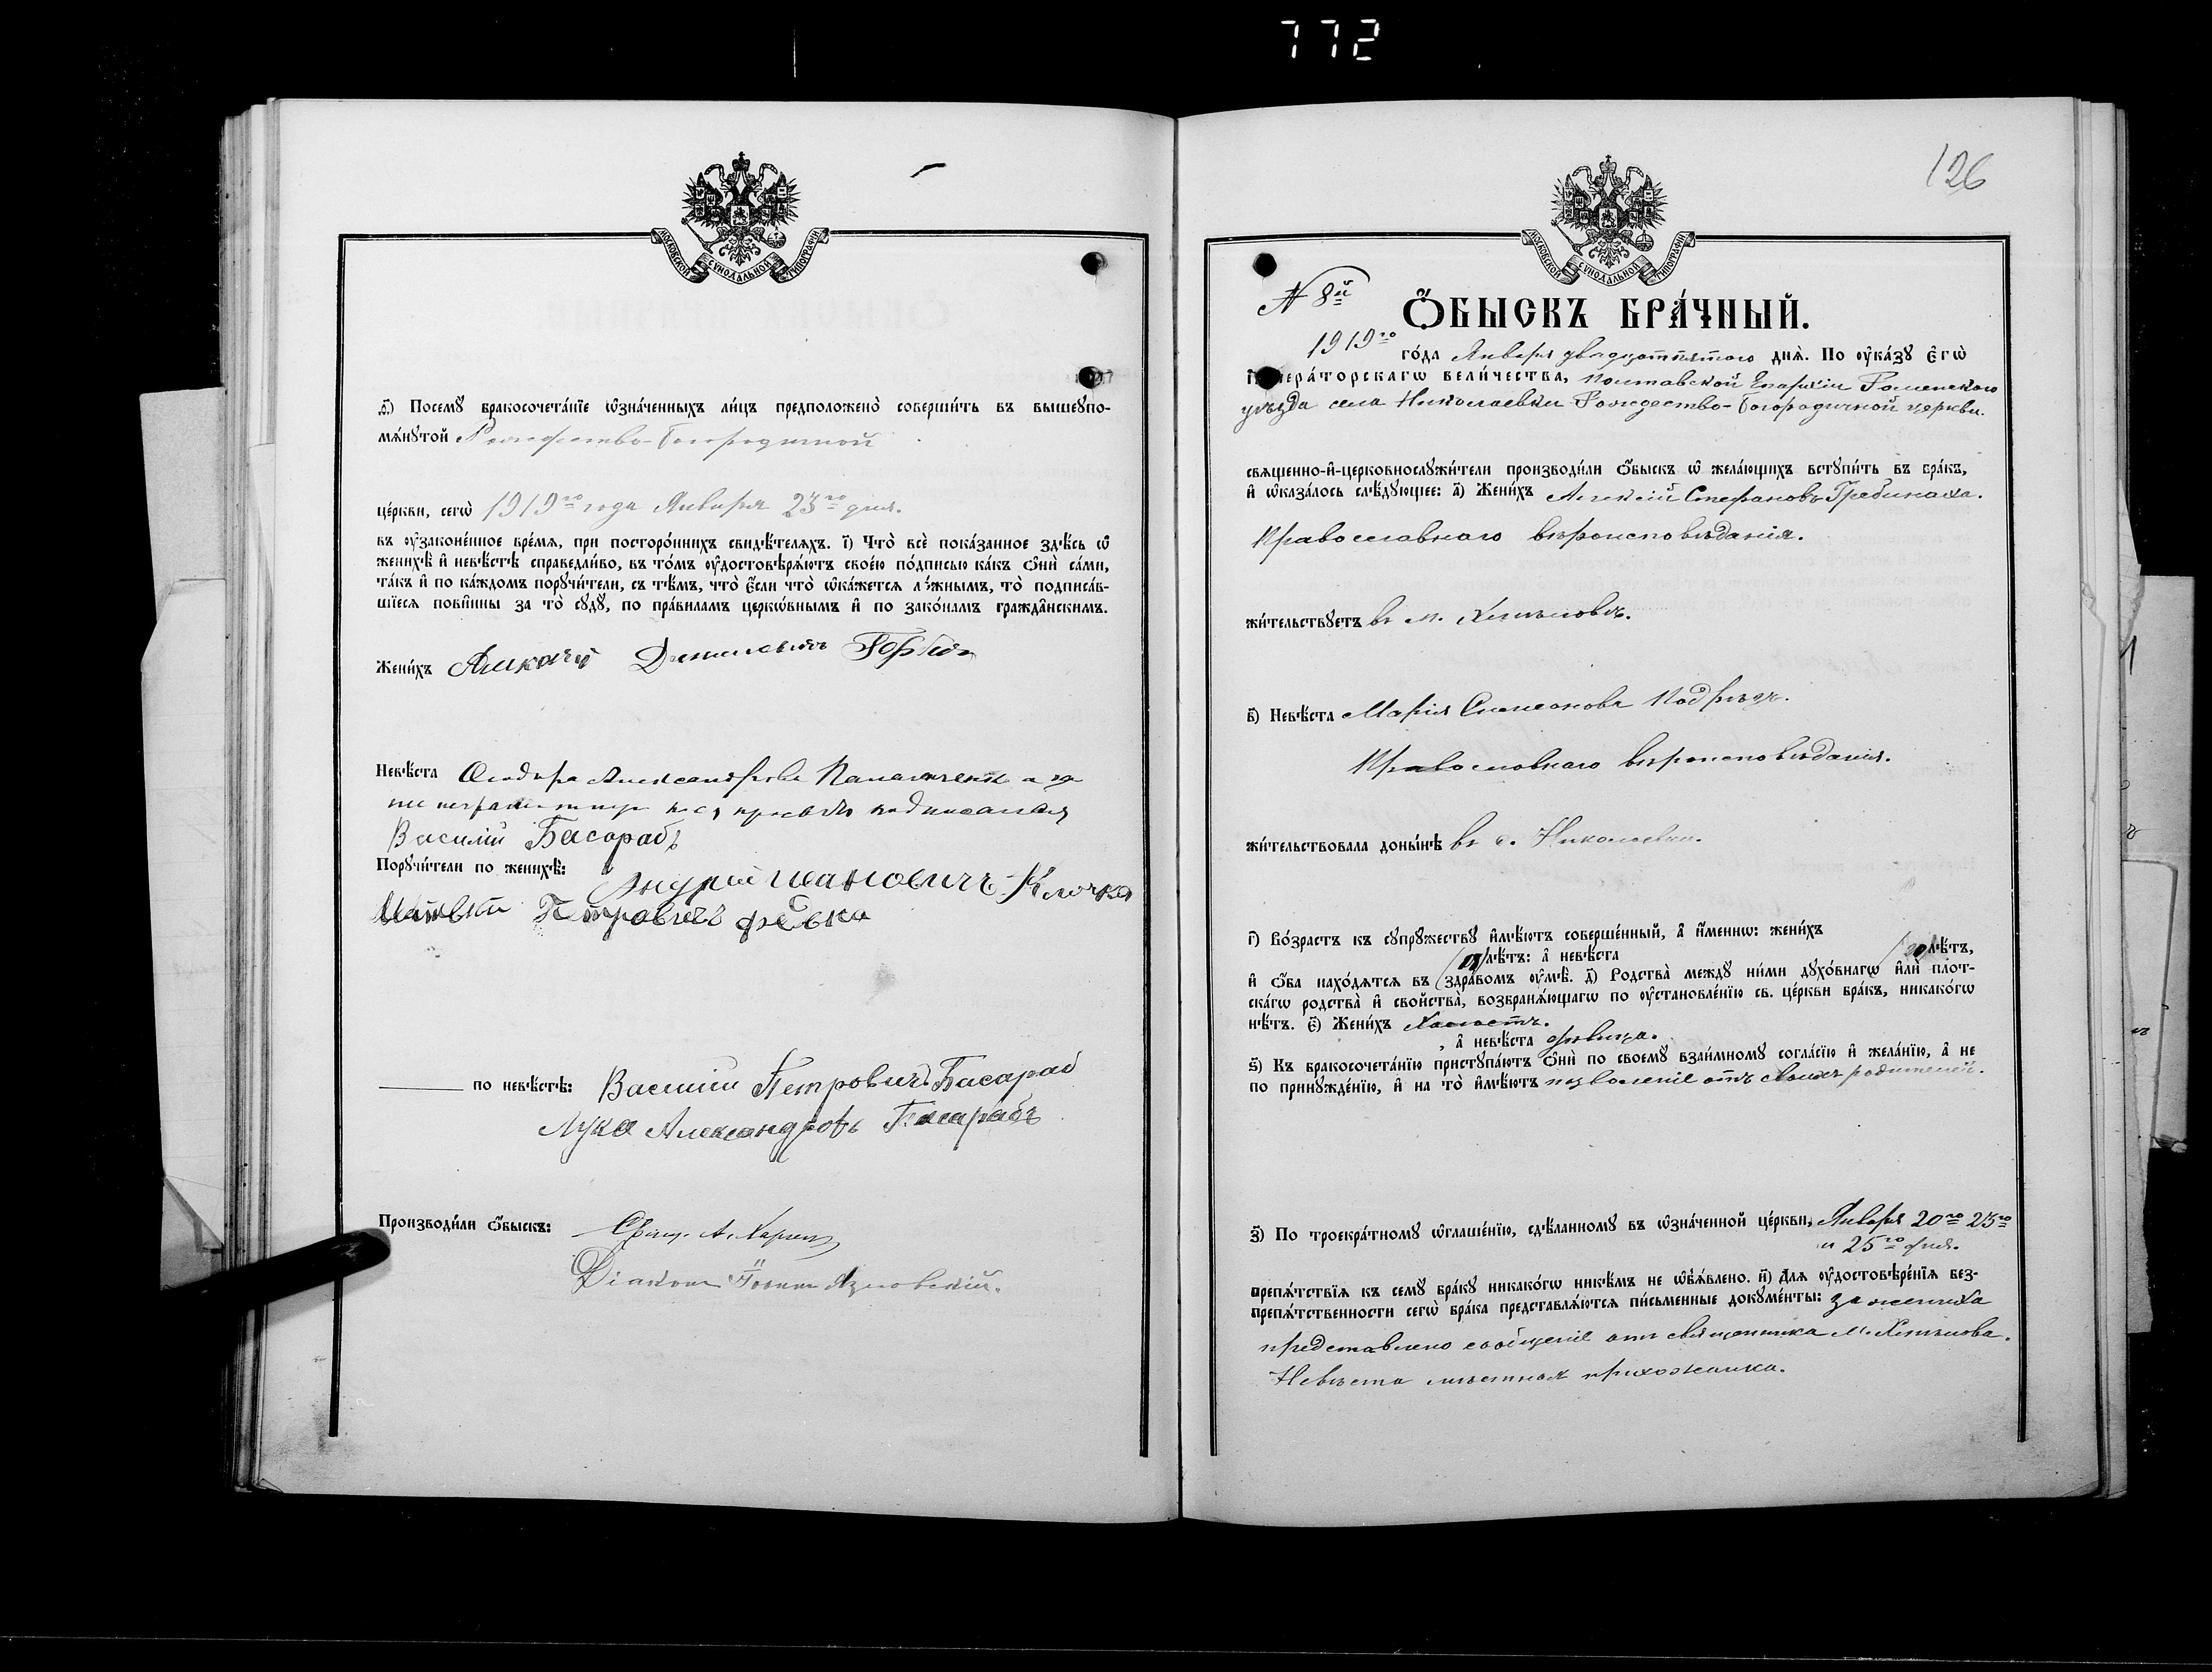 772
МОСКОВСКОЙ СѴНОДАЛЬНОЙ ТИПОГРАФІИ
ѳ҃) Посемꙋ̀ бракосочета́нїе ѡ҆зна́ченныхъ ли́цъ предположено̀ соверши́ть въ вышеꙋпо-
мѧ́нꙋтой Рождество-Богородичной
це́ркви, сегѡ̀ 1919го года Января 23го дня.
въ ѹ҆законе́нное вре́мѧ, при посторо́ннихъ свидѣ́телѧхъ. і҃) Что̀ всѐ пока́занное здѣ́сь ѡ҆
женихѣ̀ и҆ невѣ́стѣ справедли́во, въ то́мъ ѹ҆достовѣрѧ́ютъ свое́ю по́дписью ка́къ ѻ҆нѝ са́ми,
та́къ и҆ по ка́ждомъ порꙋчи́тели, съ тѣ́мъ, что̀ є҆́сли что̀ ѡ҆ка́жетсѧ ло́жнымъ, то̀ подписа́в-
шїесѧ пови́нны за то̀ сꙋдꙋ̀, по пра́виламъ церкѡ́внымъ и҆ по зако́намъ гражда̂нскимъ.
Жени́хъ
Невѣ́ста Александрова
подписался
Василій Басарабъ
Порꙋчи́тели по женихѣ̀: Андрій Ивановичъ Клочко
Петровичъ
по невѣ́стѣ: Василій Петровичъ Басараб
Лука Александровъ Басарабъ
Производи́ли ѻ҆́быскъ: Свящ. А.
Діаконъ
126
МОСКОВСКОЙ СѴНОДАЛЬНОЙ ТИПОГРАФІИ
N 8й
Ѻ҆́БЫСКЪ БРА́ЧНЫЙ.
1919го го́да Января двадцатпятого днѧ̀. По ѹ҆ка́зꙋ Є҆гѡ̀
И҆мпера́торскагѡ вели́чества, Полтавской Епархіи Роменского
уѣзда села Николаевки Рождество-Богородичной церкви.
свѧще́нно-и҆-церковнослꙋжи́тели производи́ли ѻ҆́быскъ ѡ҆ жела́ющихъ встꙋпи́ть въ бра́къ,
и҆ ѡ҆каза́лось слѣ́дꙋющее: а҃) Жени́хъ Алексій Стефановъ
Православнаго вѣроисповѣданія.
жи́тельствꙋетъ въ м.
в҃) Невѣ́ста Марія Симеонова
Православнаго вѣроисповѣданія.
жи́тельствовала доны́нѣ въ с. Николаевки.
г҃) Во́зрастъ къ сꙋпрꙋ́жествꙋ и҆мѣ́ютъ соверше́нный, а҆ и҆́меннѡ: жени́хъ
лѣ́тъ: а҆ невѣ́ста 20 лѣ́тъ,
и҆ ѻ҆́ба нахо́дѧтсѧ въ здра́вомъ ѹ҆мѣ̀. д҃) Родства̀ междꙋ̀ ни́ми дꙋхо́внагѡ и҆лѝ пло́т-
ска́гѡ родства̀ и҆ сво́йства̀, возбранѧ́ющагѡ по ѹ҆становле́нїю св. це́ркви бра́къ, никако́гѡ
нѣ́тъ. є҃) Жени́хъ Холостъ.
, а҆ невѣ́ста дѣвица.
ѕ҃) Къ бракосочета́нїю пристꙋпа́ютъ ѻ҆нѝ по своемꙋ̀ взаи́мномꙋ согла́сїю и҆ жела́нїю, а҆ не
по принꙋжде́нїю, и҆ на то̀ и҆мѣ́ютъ позволеніе отъ своихъ родителей.
з҃) По троекра́тномꙋ ѡ҆глаше́нїю, сдѣ́ланномꙋ въ ѡ҆зна́ченной це́ркви, Января 20го 23го
и 25го дня.
препѧ́тствїѧ къ семꙋ̀ бра́кꙋ никако́гѡ никѣ́мъ не ѡ҆б̾ѧ́влено. и҃) Длѧ̀ ѹ҆достовѣре́нїѧ без-
препѧ́тственности сегѡ̀ бра́ка представлѧ́ютсѧ пи́сьменные докꙋме́нты: за жениха
представлено сообщеніе отъ священника м.
Невѣста мѣстная прихожанка.